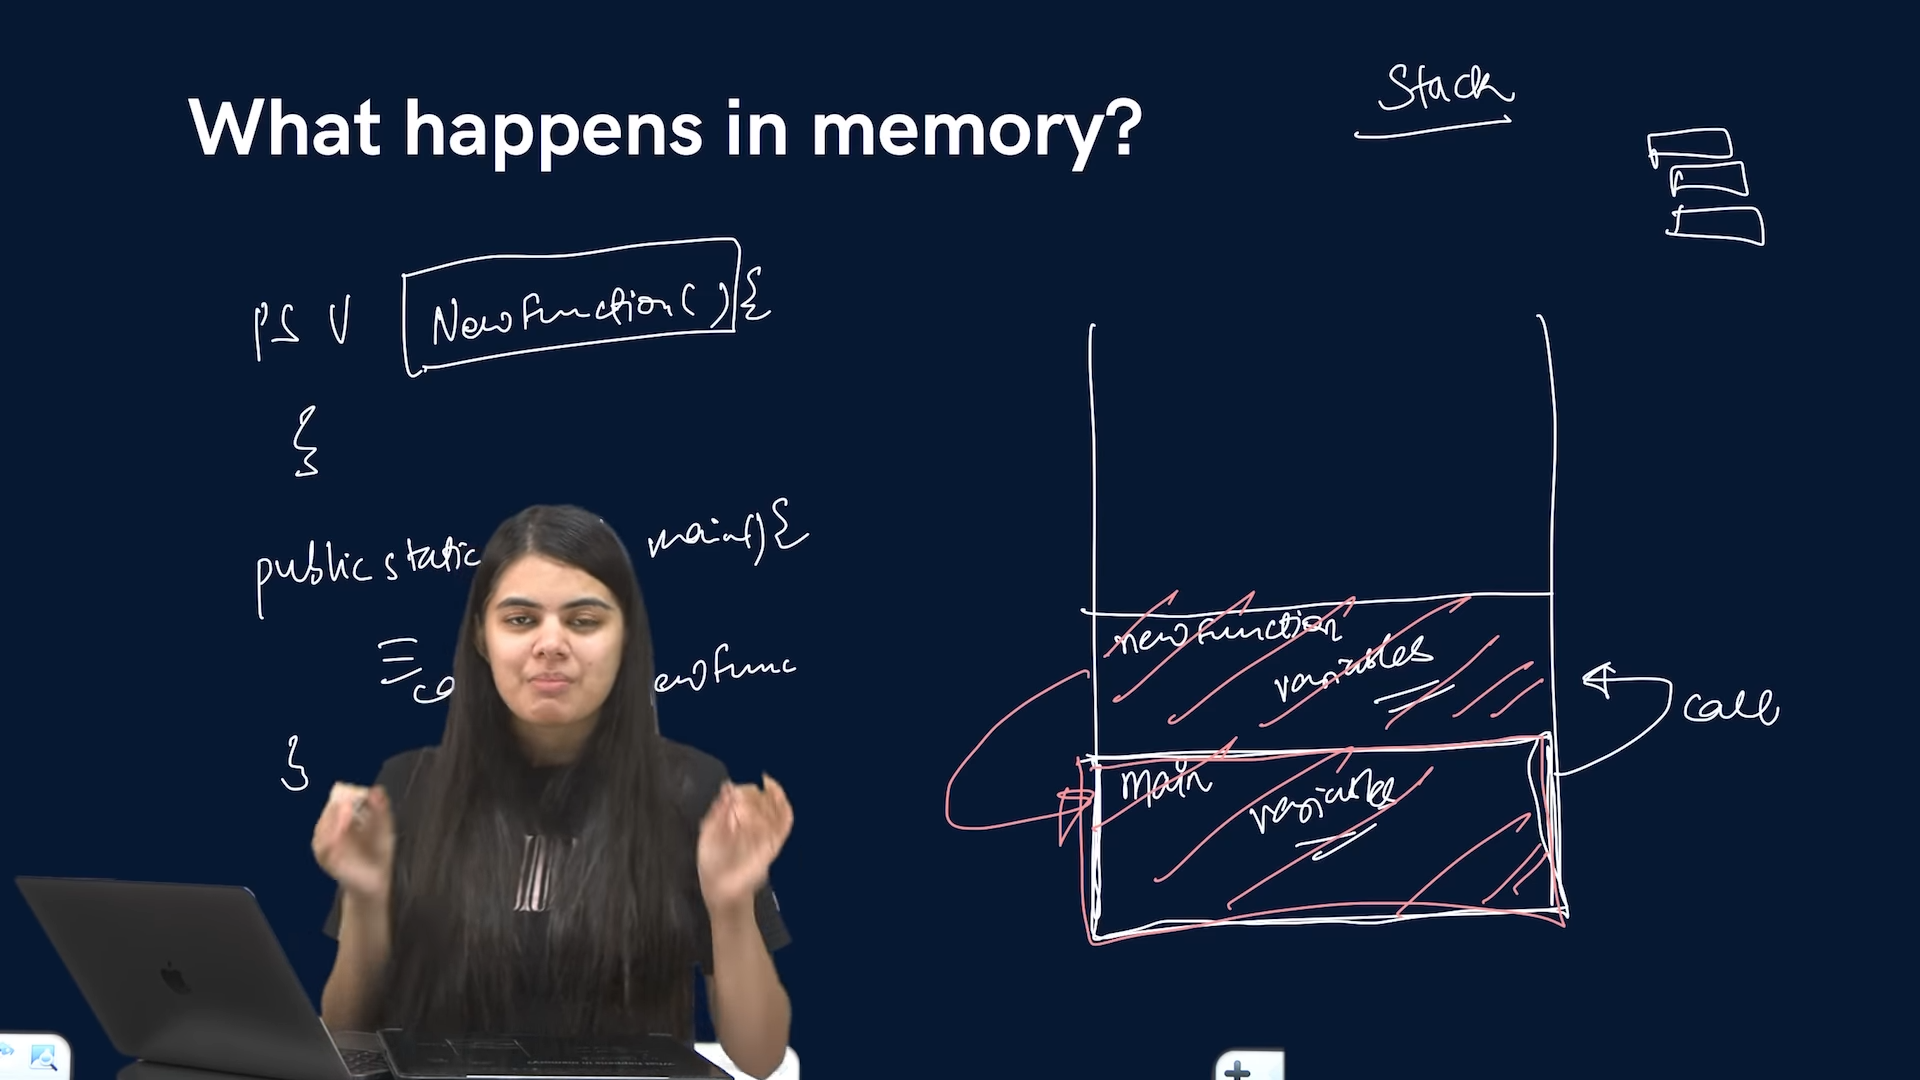 What happens in memory?
Stack
PS V NewFunction(){
}
public static main(){
newfunction
variables
call
main
variables
}